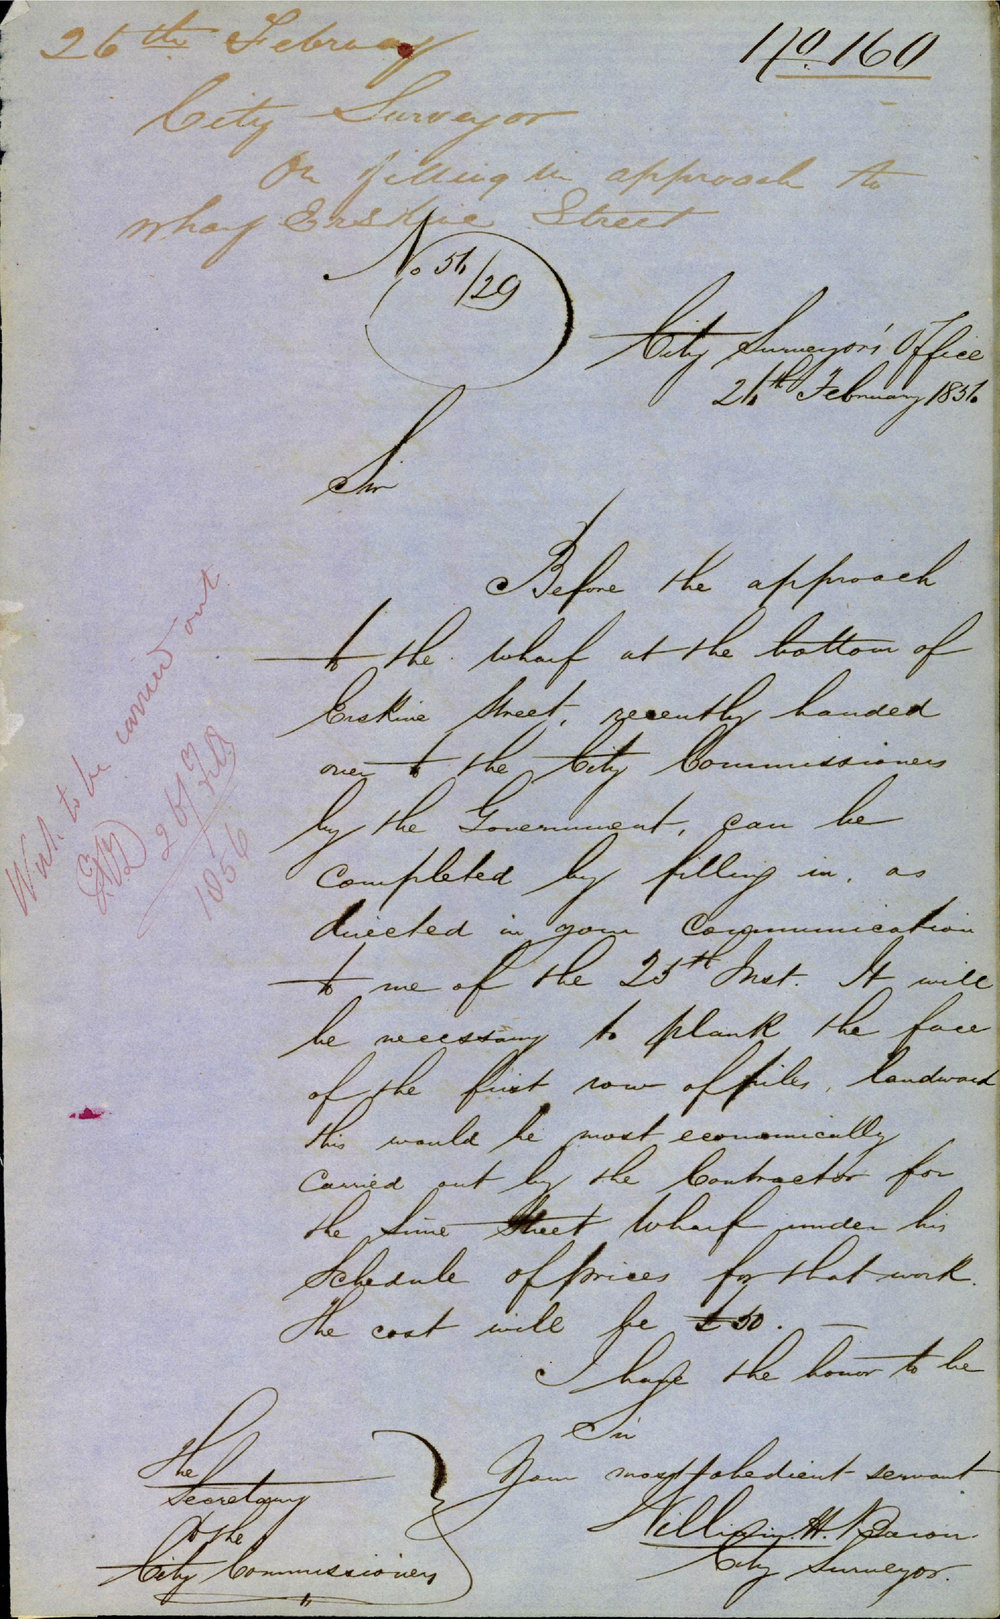 26th February
No. 160
City Surveyor
On filling in approach to
wharf Erskine Street
No 56/29
City Surveyor's Office
26th February 1856
Sir
Before the approach
to the wharf at the bottom of
Erskine Street, recently handed
over to the City Commissioners
by the Government, can be
completed by filling in, as
directed in your Communication
to me of the 25th Inst. It will
be necessary to plank the face
of the first row of piles, landward
this would be most economically
carried out by the Contractor for
the Lime Street Wharf under his
Schedule of prices for that work.
The cost will be £50. —
I have the honor to be
Sir
Your most obedient servant
William H.
City Surveyor.
The
Secretary
to the
City Commissioners
Work to be carried out
26/Feb
1856